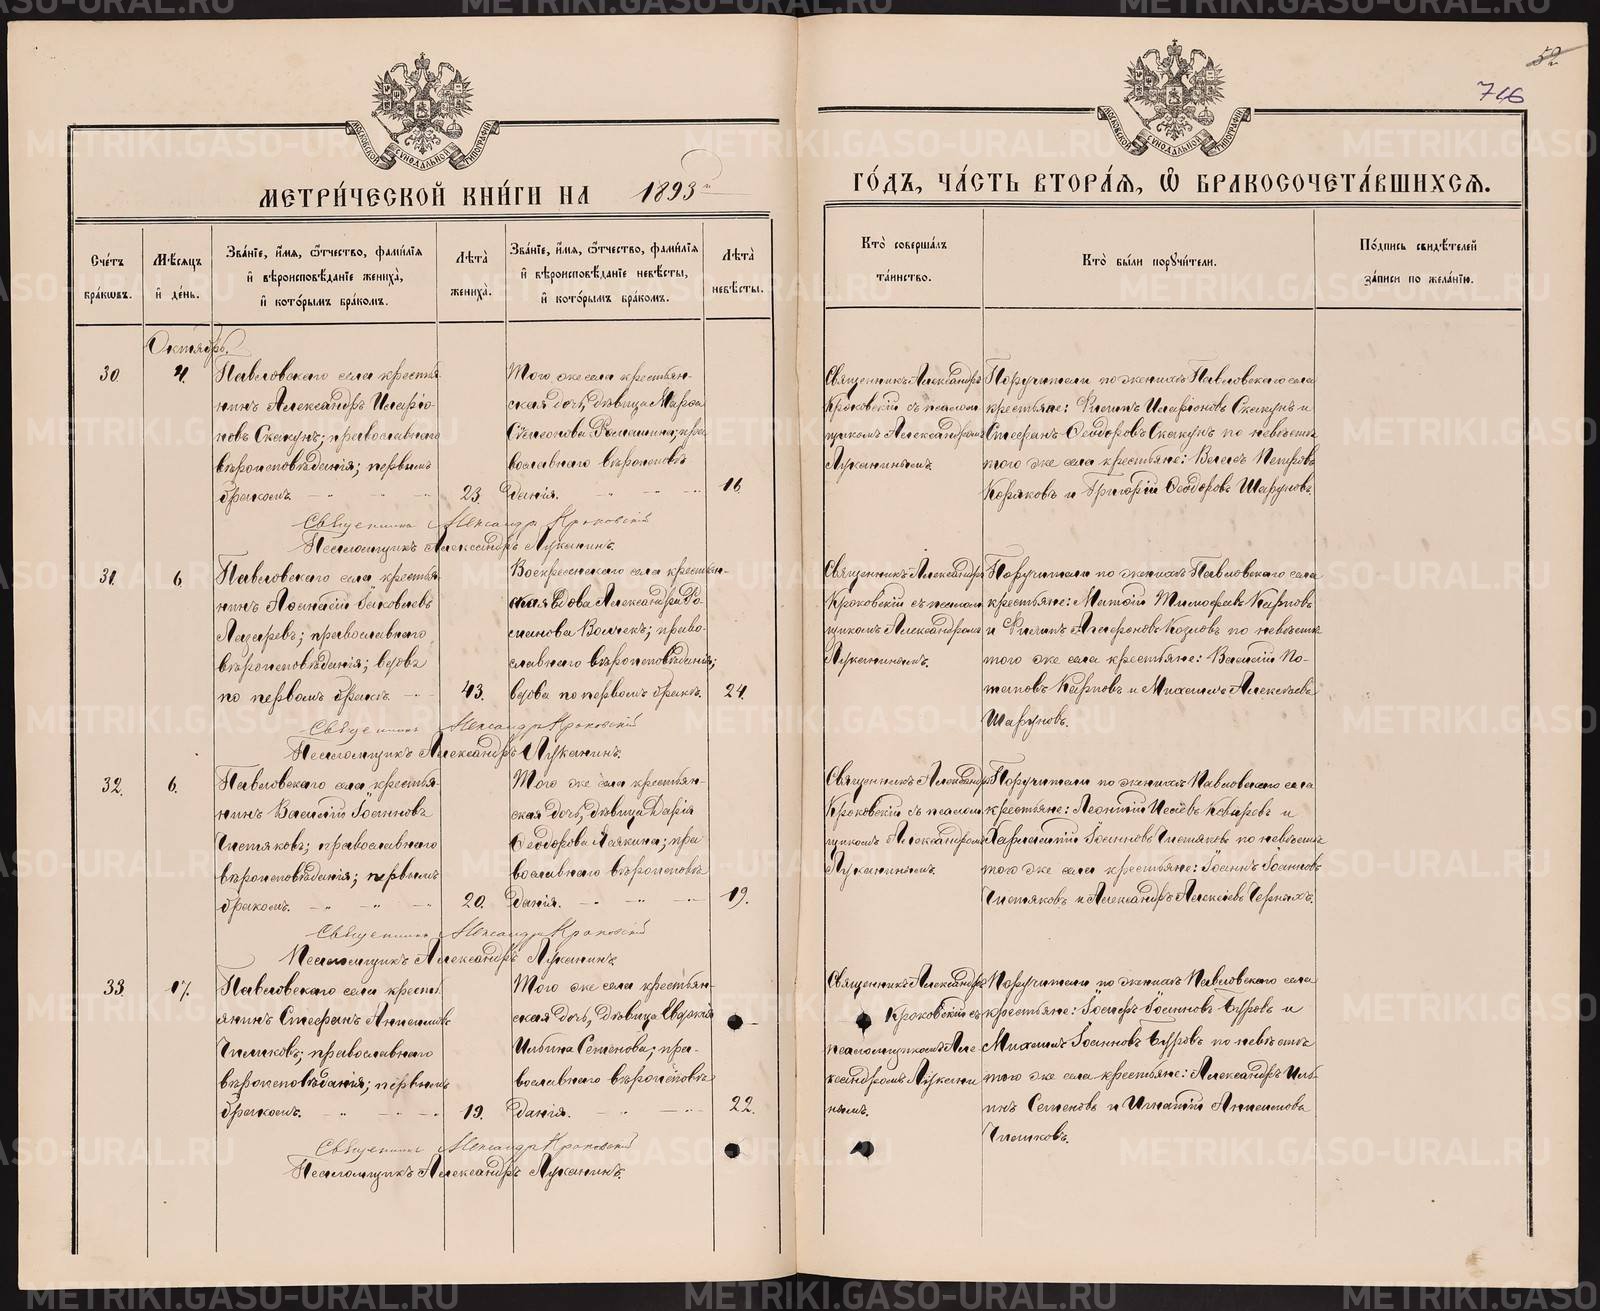 52
746
МОСКОВСКОЙ СѴНОДАЛЬНОЙ ТИПОГРАФІИ
МОСКОВСКОЙ СѴНОДАЛЬНОЙ ТИПОГРАФІИ
МЕТРИ́ЧЕСКОЙ КНИ́ГИ НА 1893й
ГО́ДЪ, ЧА́СТЬ ВТОРА́Я, Ѽ БРАКОСОЧЕТА́ВШИХСЯ.
Сче́тъ бра́кѡвъ.
Мѣ́сяцъ и҆ де́нь.
Зва́нїе, и҆́мя, ѻ҆́тчество, фами́лїя
и҆ вѣроисповѣ́данїе жениха̀,
и҆ кото́рымъ бра́комъ.
Лѣта̀ жениха̀.
Зва́нїе, и҆́мя, ѻ҆́тчество, фами́лїя
и҆ вѣроисповѣ́данїе невѣ́сты,
и҆ кото́рымъ бра́комъ.
Лѣта̀ невѣ́сты.
Кто̀ соверша́лъ
та́инство.
Кто̀ бы́ли порꙋчи́тели.
По́дпись свидѣ́телей
за́писи по жела́нїю.
Октябрь.
30.
4.
Павловскаго села крестья-
нинъ Александръ Иларіо-
новъ Скакунъ; православнаго
вѣроисповѣданія; первымъ
бракомъ.
23.
Того же села крестьян-
ская дочь, дѣвица Марѳа
Сѵмеонова Ромашина; пра-
вославнаго вѣроисповѣ-
данія.
16
Священникъ Александръ
Кроковскій съ псалом-
щикомъ Александромъ
Луканинымъ.
Поручители по женихѣ Павловскаго села
крестьяне: Филипъ Иларіоновъ Скакунъ и
Стефанъ Ѳеодоровъ Скакунъ по невѣстѣ
того же села крестьяне: Василій Петровъ
Коряковъ и Григорій Ѳеодоровъ Шаруновъ.
Священникъ Александръ Кроковскій
Псаломщикъ Александръ Луканинъ.
31.
6
Павловскаго села крестья-
нинъ Аѳанасій Іаковлевъ
Лазаревъ; православнаго
вѣроисповѣданія; вдовъ
по первомъ бракѣ.
43.
Воскресенскаго села крестьян-
ская вдова Александра Ро-
манова Волчек; право-
славнаго вѣроисповѣданія;
вдова по первомъ бракѣ.
24.
Священникъ Александръ
Кроковскій съ псалом-
щикомъ Александромъ
Луканинымъ.
Поручители по женихѣ Павловскаго села
крестьяне: Матѳій Тимофеевъ Карповъ
и Филипъ Агафоновъ Козловъ по невѣстѣ
того же села крестьяне: Василій По-
таповъ Карповъ и Михаилъ Алексѣевъ
Шаруновъ.
Священникъ Александръ Кроковскій
Псаломщикъ Александръ Луканинъ.
32.
6.
Павловскаго села крестья-
нинъ Василій Іоанновъ
Чистяковъ; православнаго
вѣроисповѣданія; первымъ
бракомъ.
20.
Того же села крестьян-
ская дочь, дѣвица Дарія
Ѳеодорова Лаякина; пра-
вославнаго вѣроисповѣ-
данія.
19.
Священникъ Александръ
Кроковскій съ псалом-
щикомъ Александромъ
Луканинымъ.
Поручители по женихѣ Павловскаго села
крестьяне: Леонтій Исаевъ Кобыревъ и
Харлампій Іоанновъ Чистяковъ по невѣстѣ
того же села крестьяне: Іоаннъ Іоанновъ
Чистяковъ и Александръ Алексѣевъ Черныхъ.
Священникъ Александръ Кроковскій
Псаломщикъ Александръ Луканинъ
33.
17.
Павловскаго села кресть-
янинъ Стефанъ Антипановъ
Чисиковъ; православнаго
вѣроисповѣданія; первымъ
бракомъ.
19.
Того же села крестьян-
ская дочь, дѣвица Евдокія
Ильина Семенова; пра-
вославнаго вѣроисповѣ-
данія.
22.
Священникъ Александръ
Кроковскій съ
псаломщикомъ Але-
ксандромъ Лукани-
нымъ.
Поручители по женихѣ Павловскаго села
крестьяне: Іосифъ Іоанновъ Буровъ и
Михаилъ Іоанновъ Буровъ по невѣстѣ
того же села крестьяне: Александръ Иль-
инъ Семеновъ и Игнатій
Священникъ Александръ Кроковскій
Псаломщикъ Александръ Луканинъ.
METRIKI.GASO-URAL.RU